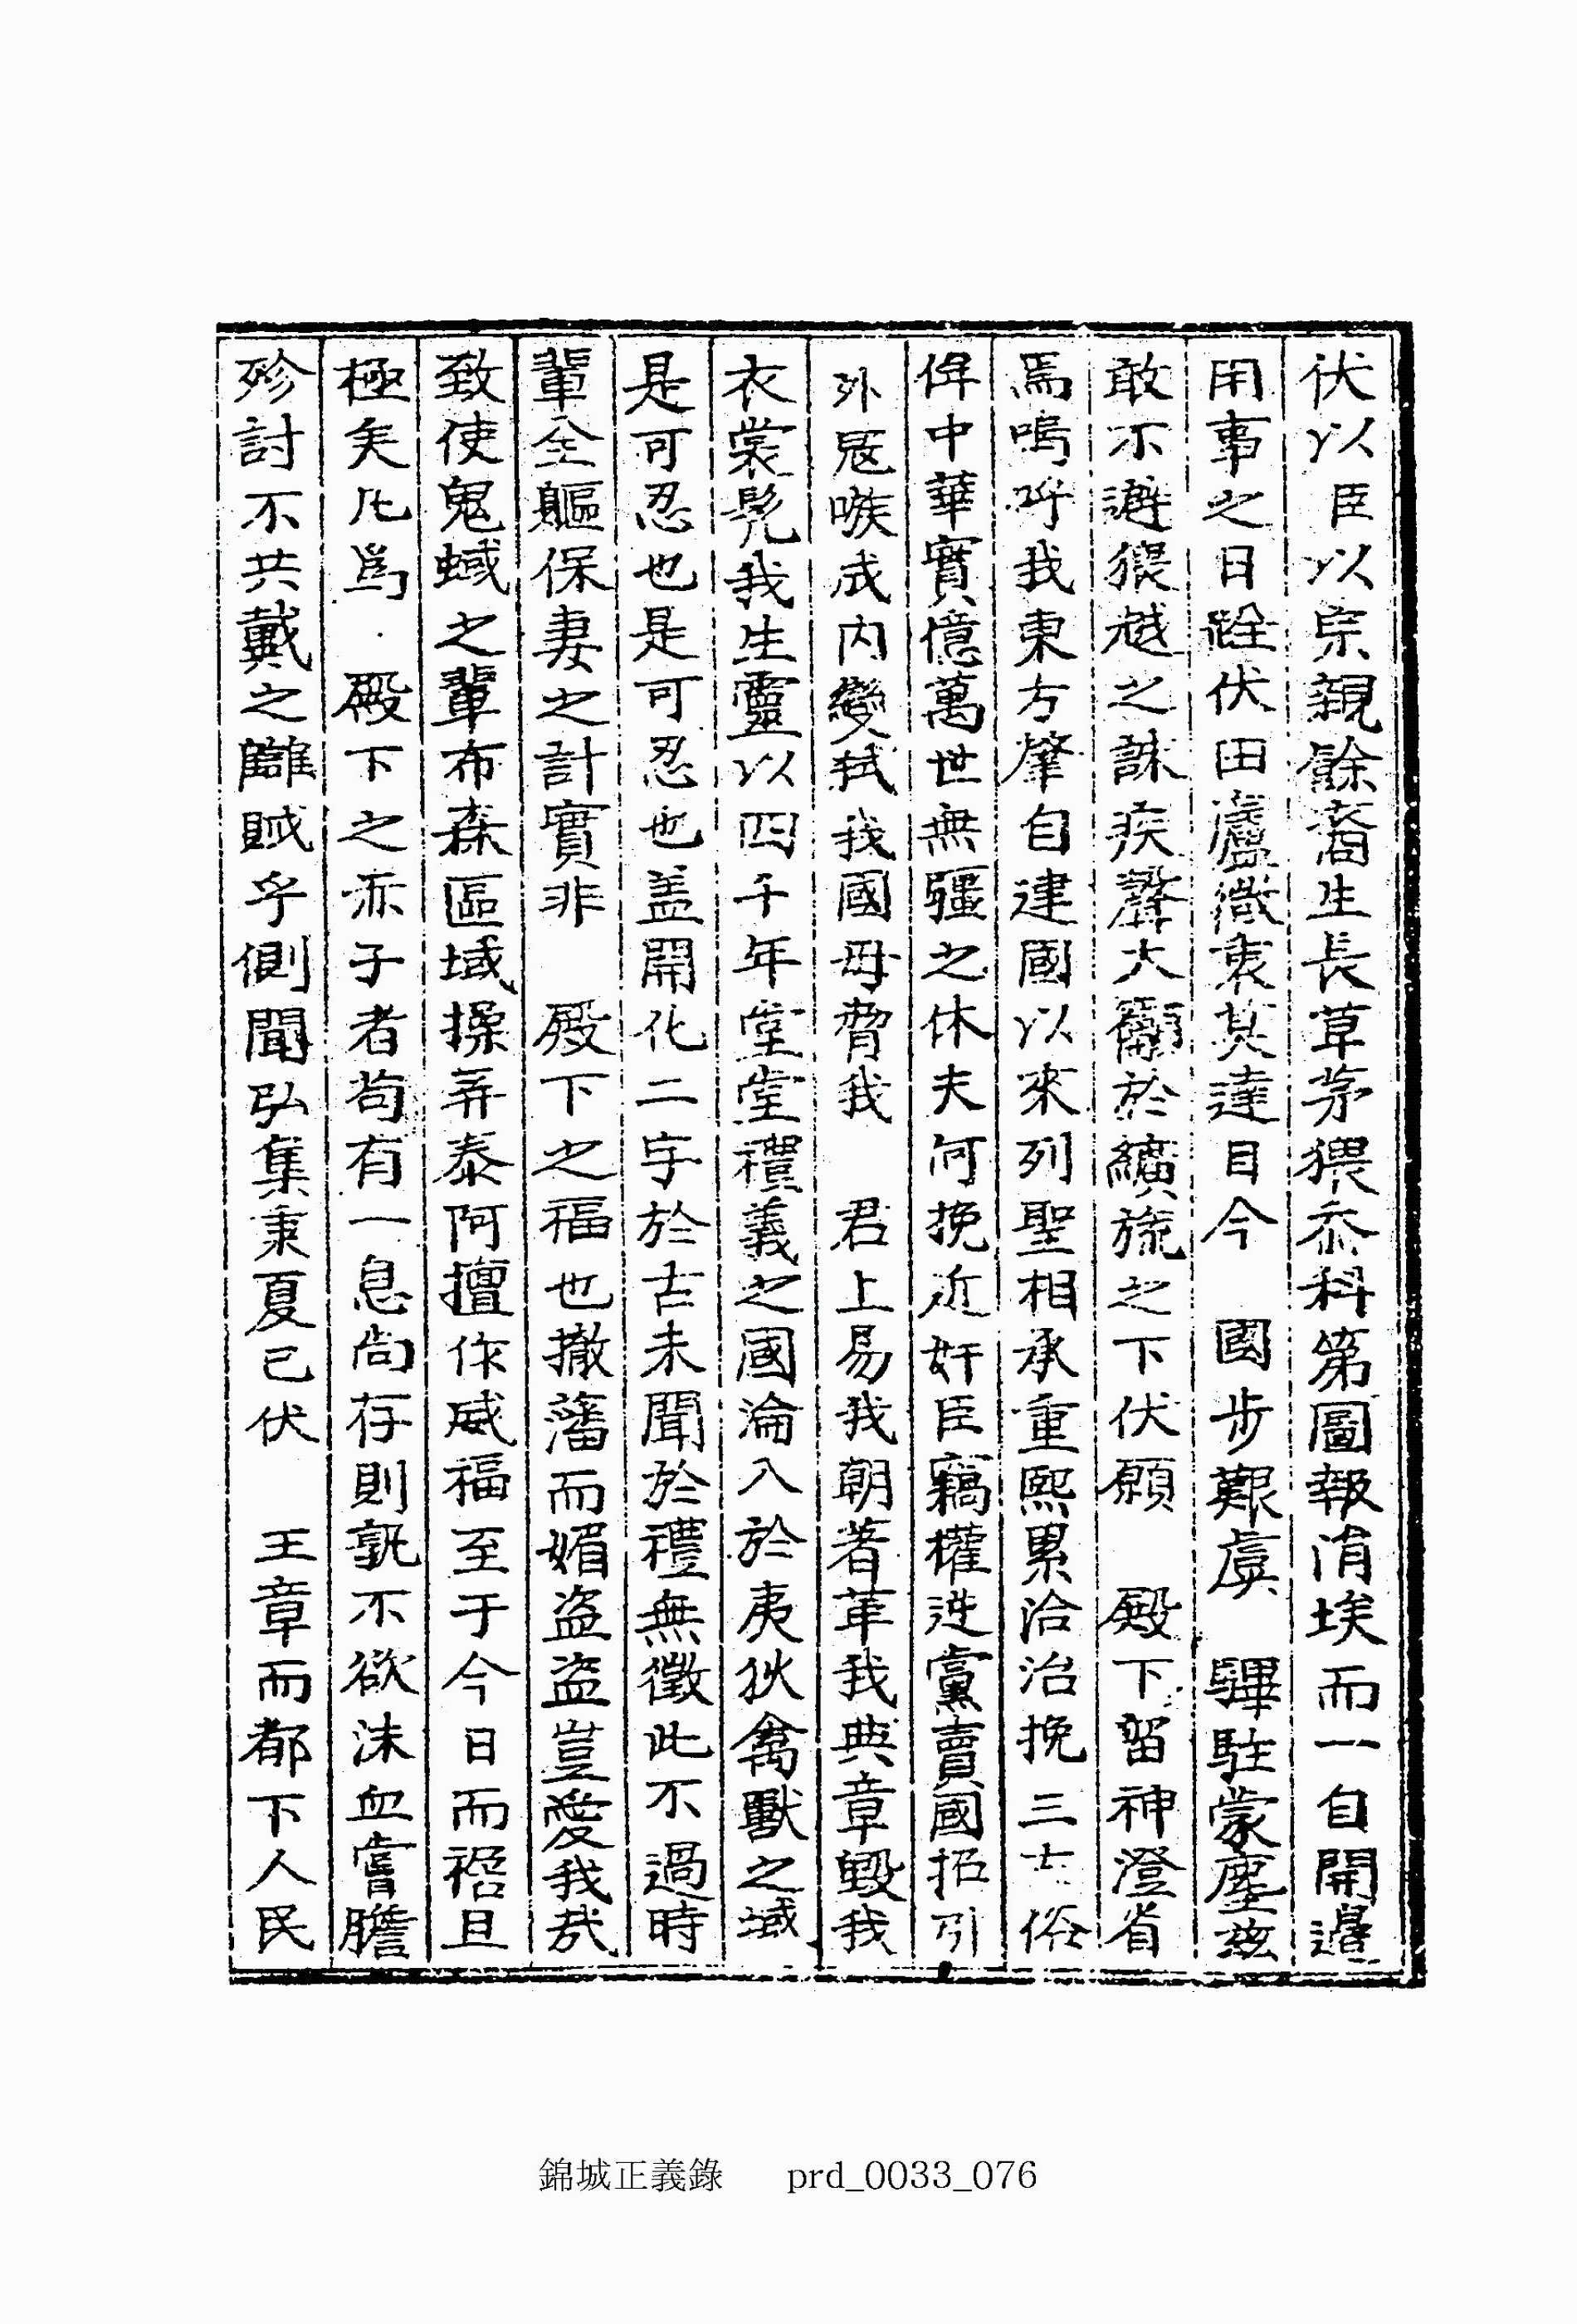 伏以臣以宗親餘裔生長草茅猥忝科第圖報涓埃而一自開邊
用事之日跧伏田廬微衷莫達目今　國步艱虞　驆駐蒙塵玆
敢不避猥越之誅疾聲大籲於纊旒之下伏願　殿下留神澄省
焉嗚呼我東方肇自建國以來列聖相承重熙累洽治挽三古俗
侔中華實億萬世無疆之休夫何挽近奸臣竊權進黨賣國招引
外寇嗾成內變弑我國母脅我　君上易我朝著革我典章毁我
衣裳髡我生靈以四千年堂堂禮義之國淪入於夷狄禽獸之域
是可忍也是可忍也盖開化二字於古未聞於禮無徵此不過時
輩全軀保妻之計實非　殿下之福也撤藩而媚盜盜豈愛我哉
致使鬼蜮之輩布森區域操弄泰阿擅作威福至于今日而褐且
極矣凡爲　殿下之赤子者苟有一息尙存則孰不欲沫血嘗膽
殄討不共戴之讎賊乎側聞弘集秉夏已伏　王章而都下人民
錦城正義錄　prd_0033_076